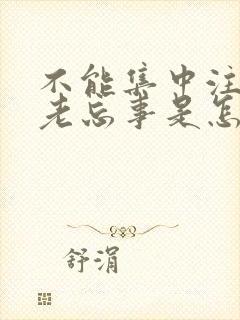 不能集中注
老忘事是怎
舒涓